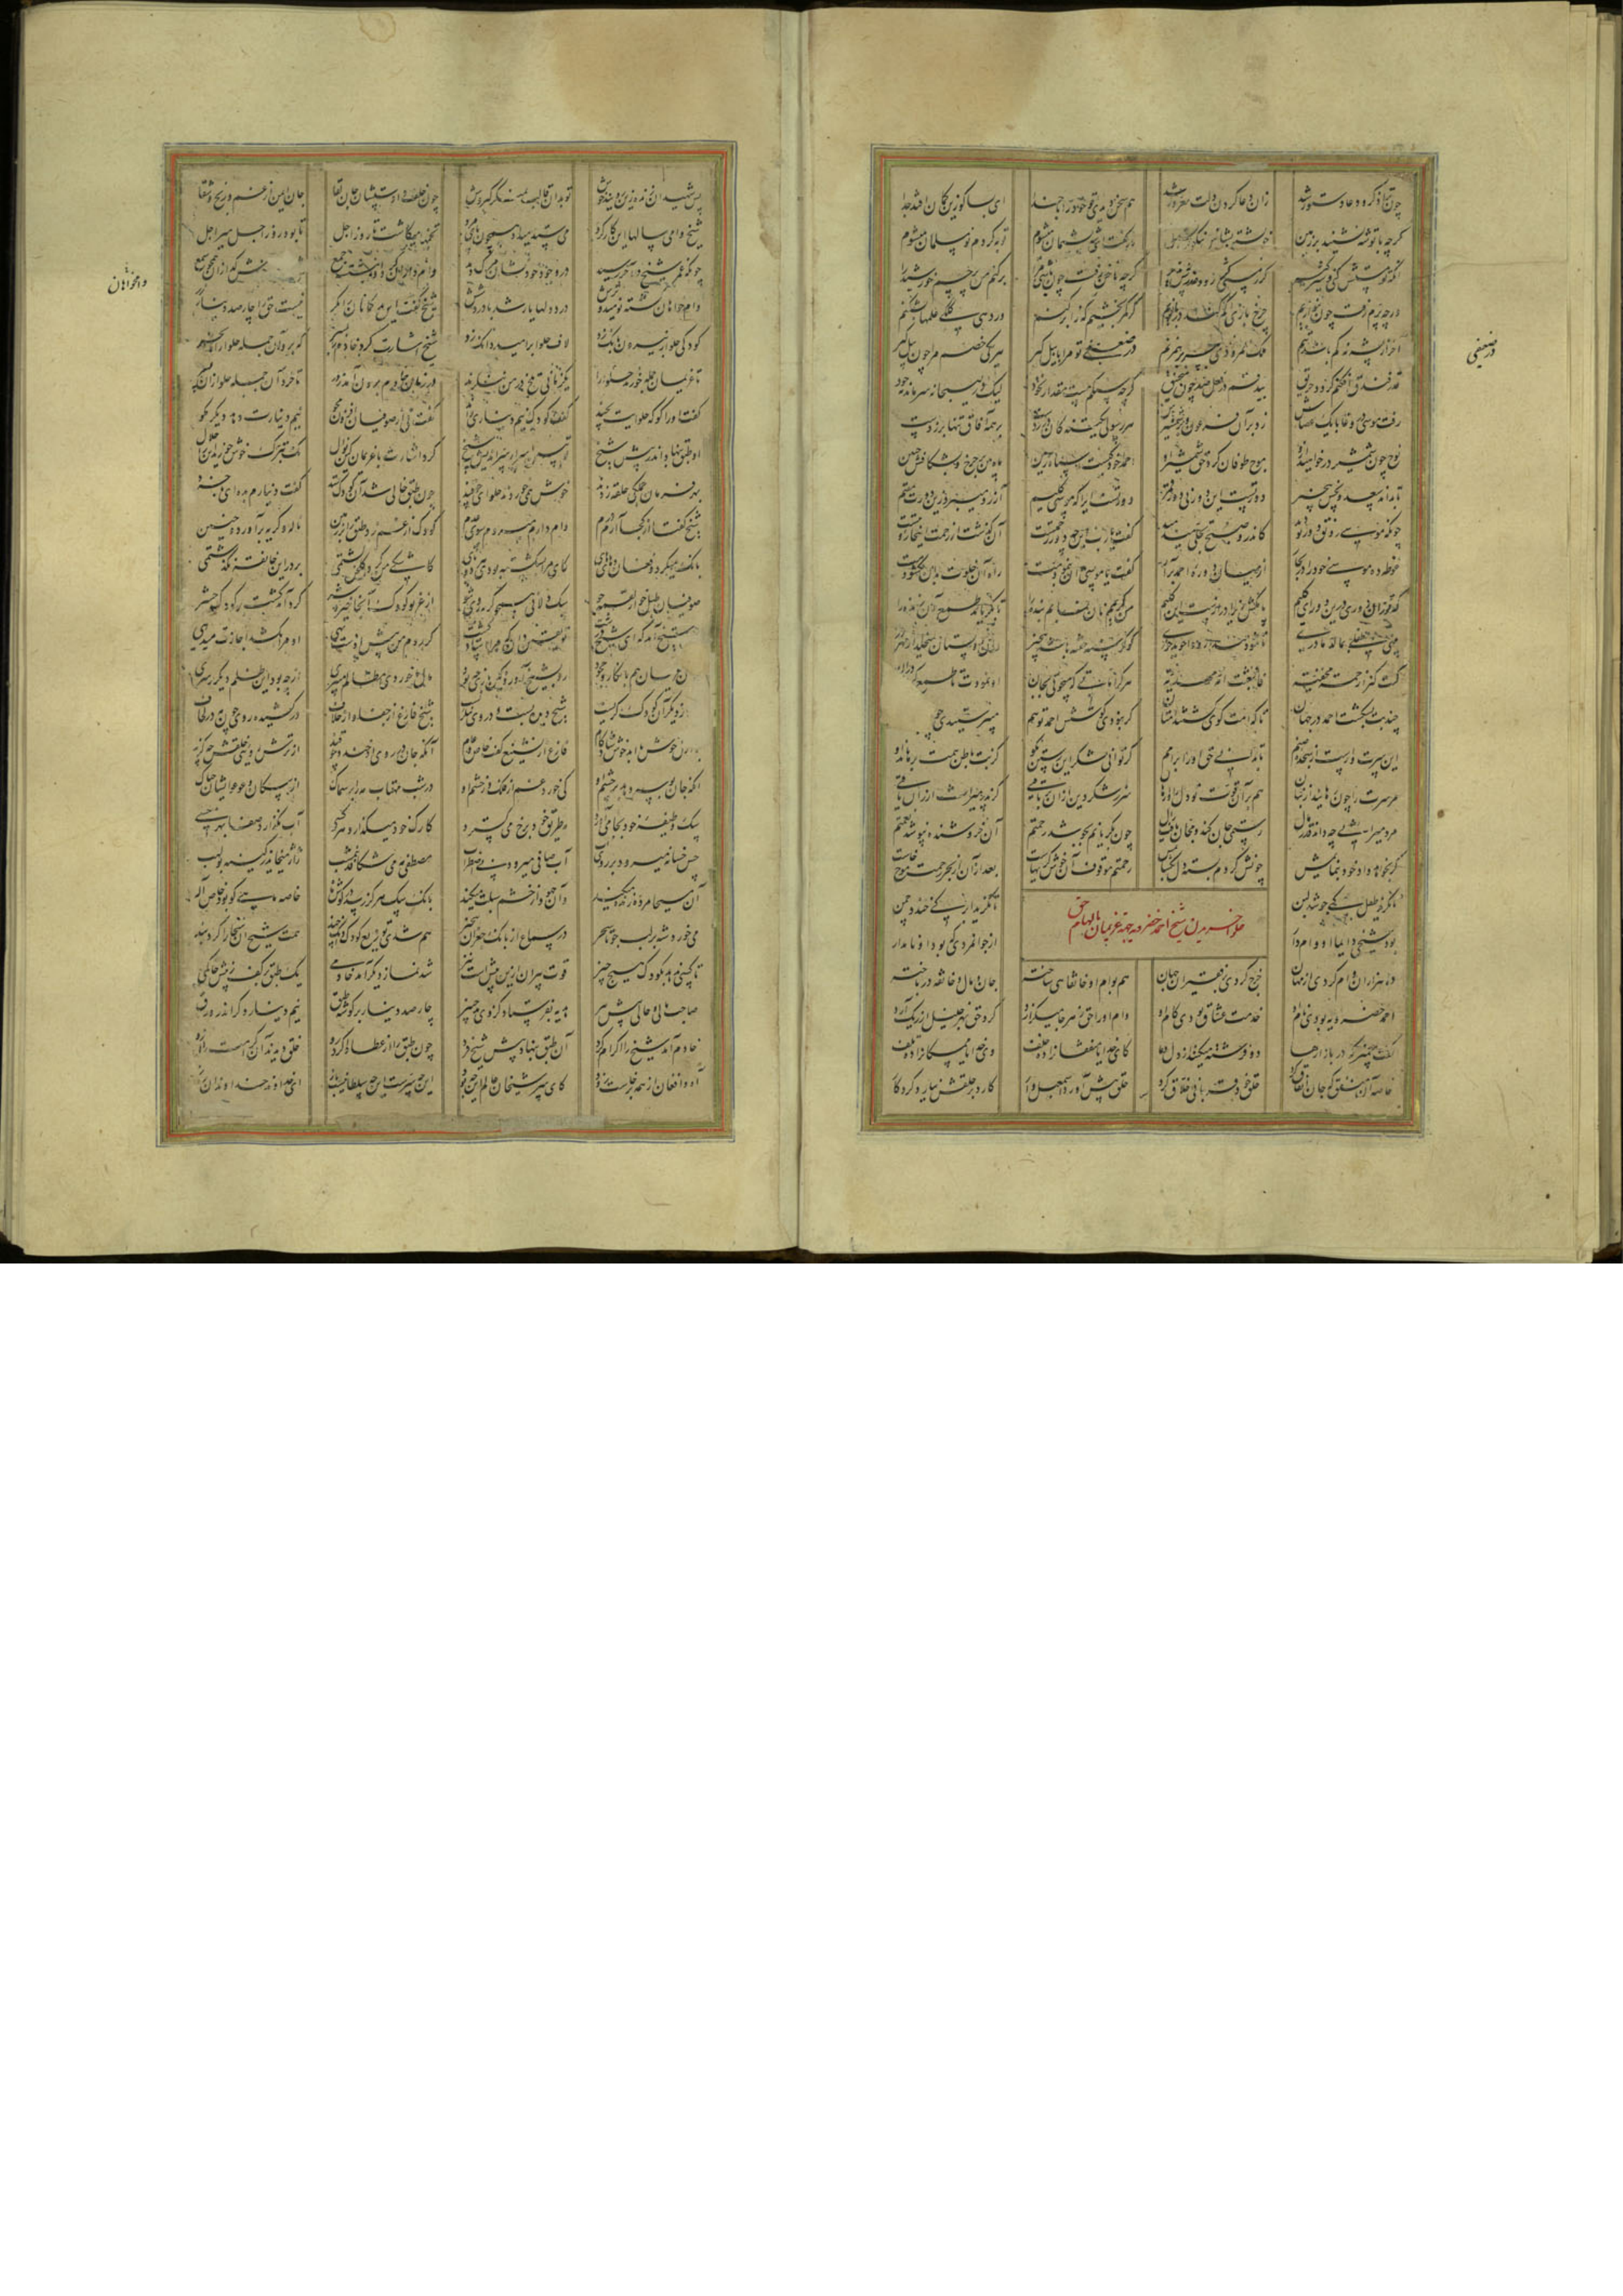 چون ترا ذکر و دعا دستور شد زان دعا کردن دلت مغرور شد هم سخن دیدی تو خود را با خدا ای بسا کو زین گمان افتد جدا
گرچه با تو شه نشیند بر زمین خویشتن بشناس و نیکوتر نشین باز گفت ای شه پشیمان میشوم توبه کردم نو مسلمان میشوم
آنکه تو مستش کنی و شیرگیر گر ز مستی کژ رود عذرش پذیر گرچه ناخن رفت چون باشی مرا برکنم من پرچم خورشید را
ورچه پرم رفت چون بنوازیم چرخ بازی گم کند در بازیم گر کمر بخشیم که را برکنم ور دهی کلکی علمها بشکنم
آخر از پشه نه کم باشد تنم ملک نمرودی بپر برهم زنم در ضعیفی تو مرا بابیل گیر هر یکی خصم مرا چون پیل گیر
قدر فندق افکنم بندق حریق بندقم در فعل صد چون منجنیق گرچه سنگم هست مقدار نخود لیک در هیجا نه سر ماند نه خود
رفت موسی در وغا با یک عصاش زد بر آن فرعون و بر شمشیرهاش هر رسولی یک تنه کان در زدست بر همه آفاق تنها بر زدست
نوح چون شمشیر در خواهید ازو موج طوفان کرد حق شمشیر او احمدا خود کیست اسپاه زمین ماه بین بر چرخ و بشکافش جبین
تا بداند سعد و نحس بیخبر دور تست این دور نی دور قمر دور تست ایرا که موسی کلیم آرزو میبرد زین دورت مقیم
چونکه موسی رونق دور تو دید کاندرو صبح تجلی میدمید گفت یا رب این چه دور رحمتست آن گذشت از رحمت اینجا رؤیتست
غوطه ده موسی خود را در بحار از میان دوره احمد برآر گفت یا موسی بدان بنمودمت راه آن خلوت بدان بگشودمت
که تو زان دوری درین دور ای کلیم پا بکش زیرا درازست این گلیم من کریمم نان نمایم بنده را تا بگریاند طمع آن زنده را
بینی طفلی بمالد مادری تا شود بیدار وا جوید خوری کو گرسنه خفته باشد بیخبر وان دو پستان میخلد از مهر در
کنت کنزا رحمة مخفیة فابتعثت امة مهدیة هر کراماتی که میجویی بجان او نمودت تا طمع کردی در آن
چند بت بشکست احمد در جهان تا که امت گوی گشتند امتان گر نبودی کوشش احمد تو هم میپرستیدی چو
این سرت وارست از سجده صنم تا بدانی حق او را بر امم گر توانی شکر این رستن بگو کز بت باطن همت برهاند او
مر سرت را چون رهانید از بتان هم بدان قوت تو دل را وارهان سر ز شکر دین از آن برتافتی کز پدر میراث ارزان یافتی
مرد میراثی چه داند قدر مال رستمی جان کند و مجان یافت زال چون بگریانم بجوشد رحمتم آن خروشنده بنوشد نعمتم
گر نخواهم داد خود ننمایمش چونش کردم بسته دل بگشایمش رحمتم موقوف آن خوش گریهاست بعد از آن از بحر رحمت موج خاست
تا نگرید طفل کی جوشد لبن تا نگرید ابر کی خندد چمن
حلوا خریدن شیخ احمد خضرویه جهة غریمان بالهام حق
بود شیخی دایما او وامدار از جوانمردی که بود او نامدار
ده هزاران وام کردی از مهان خرج کردی بر فقیران جهان هم بوام او خانقاهی ساخته جان و مال و خانقه در باخته
احمد خضرویه بودی نام او خدمت عشاق بودی کام او وام او را حق ز هر جا میگزارد کرد حق بهر خلیل از ریگ آرد
گفت پیغمبر که در بازارها دو فرشته میکنند از دل دعا کای خدایا منفقان را ده خلف وی خدایا ممسکان را ده تلف
خاصه آن منفق که جان انفاق کرد حلق خود قربانی خلاق کرد حلق پیش آورد اسمعیل وار کارد بر حلقش نیارد کرد کار
در ضعیفی
پس شهیدان زنده زین رویند و خوش تو بدان قالب بمنگر گبروش چون خلف دادستشان جان بقا جان ایمن از غم و رنج و شقا
شیخ وامی سالها این کار کرد میستد میداد همچون پایمرد تخمها میکاشت تا روز اجل تا بود روز اجل میر اجل
چونکه عمر شیخ در آخر رسید در وجود خود نشان مرگ دید وامداران گرد او بنشسته جمع شیخ بر خود خوش گدازان همچو شمع
وامخواهان گشته نومید و ترش درد دلها یار شد با درد شش شیخ گفت این بدگمانان را نگر نیست حق را چارصد دینار زر
کودکی حلوا ز بیرون بانگ زد لاف حلوا بر امید دانگ زد شیخ اشارت کرد خادم را بسر که برو آن جمله حلوا را بخر
تا غریمان چونکه حلوا را خورند یک زمانی تلخ در من ننگرند در زمان خادم برون آمد ز در تا خرد آن جمله حلوا زان پسر
گفت او را کوکه حلوا بچند گفت کودک نیم دینار و اند گفت نی از صوفیان افزون مجو نیم دینارت دهم دیگر مگو
او طبق بنهاد اندر پیش شیخ تو ببین اسرار سر اندیش شیخ کرد اشارت با غریمان کین نوال نک تبرک خوش خورید این را حلال
بهر فرمان جملگی حلقه زدند خوش همی خوردند حلوا همچو قند چون طبق خالی شد آن کودک ستد گفت دینارم بده ای پر خرد
شیخ گفتا از کجا آرم درم وام دارم میروم سوی عدم کودک از غم زد طبق را بر زمین ناله و گریه برآورد و حنین
بانگ میکرد و فغان و های های کای مرا بشکسته بودی هر دو پای کاشکی من گرد گلخن گشتمی بر در این خانقه نگذشتمی
صوفیان طبل خوار لقمه جو سگ دلان همچو گربه روی شو از غریو کودک آنجا خیر و شر گرد آمد گشت بر کودک حشر
پیش شیخ آمد که ای شیخ درشت تو یقین دان که مرا استاد کشت گر روم من پیش او دست تهی او مرا بکشد اجازت میدهی
وان غریمان هم بانکار و جحود رو بشیخ آورده کین بازی چه بود مال ما خوردی مظالم میبری از چه بود این ظلم دیگر بر سری
تا نماز دیگر آن کودک گریست شیخ دیده بست و در وی ننگریست شیخ فارغ از جفا و از خلاف در کشیده روی چون مه در لحاف
با اجل خوش با ازل خوش شادکام فارغ از تشنیع و گفت خاص و عام آنکه جان در روی او خندد چو قند از ترش رویی خلقش چه گزند
آنکه جان بوسه دهد بر چشم او کی خورد غم از فلک وز خشم او در شب مهتاب مه را بر سماک از سگان و وعوع ایشان چه باک
سگ وظیفه خود بجا میآرد مه وظیفه خود برخ میگسترد کارک خود میگذارد هر کسی آب نگذارد صفا بهر خسی
خس خسانه میرود بر روی آب آب صافی میرود بی اضطراب مصطفی مه میشکافد نیمشب ژاژ میخاید ز کینه بولهب
آن مسیحا مرده زنده میکند وآن جهود از خشم سبلت میکند بانگ سگ هرگز رسد در گوش ماه خاصه ماهی کو بود خاص اله
می خورد شه بر لب جو تا سحر در سماع از بانگ چغزان بیخبر هم شدی توزیع کودک دانگ چند همت شیخ آن سخا را کرد بند
تا کسی ندهد بکودک هیچ چیز قوت پیران ازین بیش است نیز شد نماز دیگر آمد خادمی یک طبق بر کف ز پیش حاتمی
صاحب مالی و حالی پیش پیر هدیه بفرستاد کز وی بد خبیر چارصد دینار بر گوشه طبق نیم دینار دگر اندر ورق
خادم آمد شیخ را اکرام کرد وان طبق بنهاد پیش شیخ فرد چون طبق را از غطا وا کرد رو خلق دیدند آن کرامت را ازو
آه و افغان از همه برخاست زود کای سر شیخان عالم این چه بود این چه سرست این چه سلطانیست باز ای خداوند خداوندان راز
وامخواهان